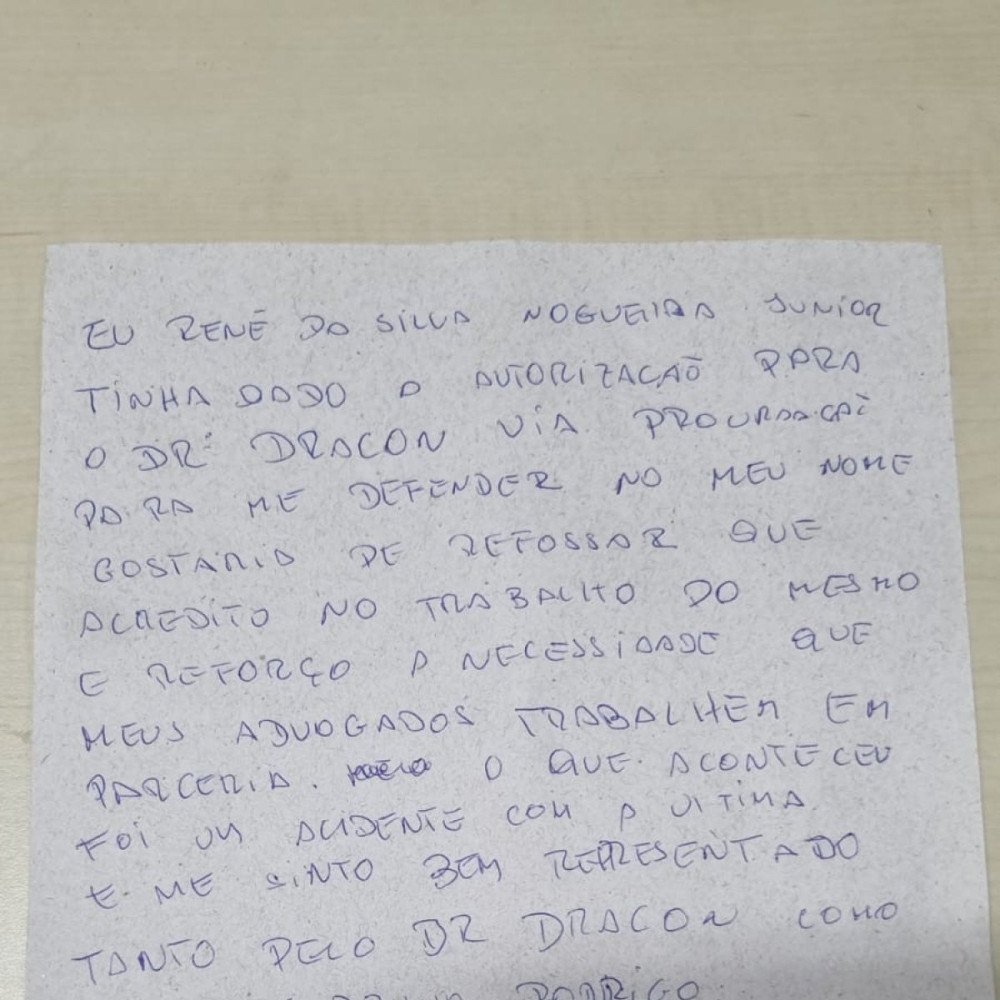 EU RENÊ DA SILVA NOGUEIRA JUNIOR
TINHA DADO A AUTORIZACAÕ PARA
O DR. DRACON VIA PROCURAÇAÕ
PARA ME DEFENDER NO MEU NOME
GOSTARIA DE REFOSSAR QUE
ACREDITO NO TRABALHO DO MESMO
E REFORÇO A NECESSIDADE QUE
MEUS ADVOGADOS TRABALHEM EM
PARCERIA. O QUE ACONTECEU
FOI UM ACIDENTE COM A VITIMA.
E ME SINTO BEM REPRESENTADO
TANTO PELO DR DRACON COMO
RODRIGO